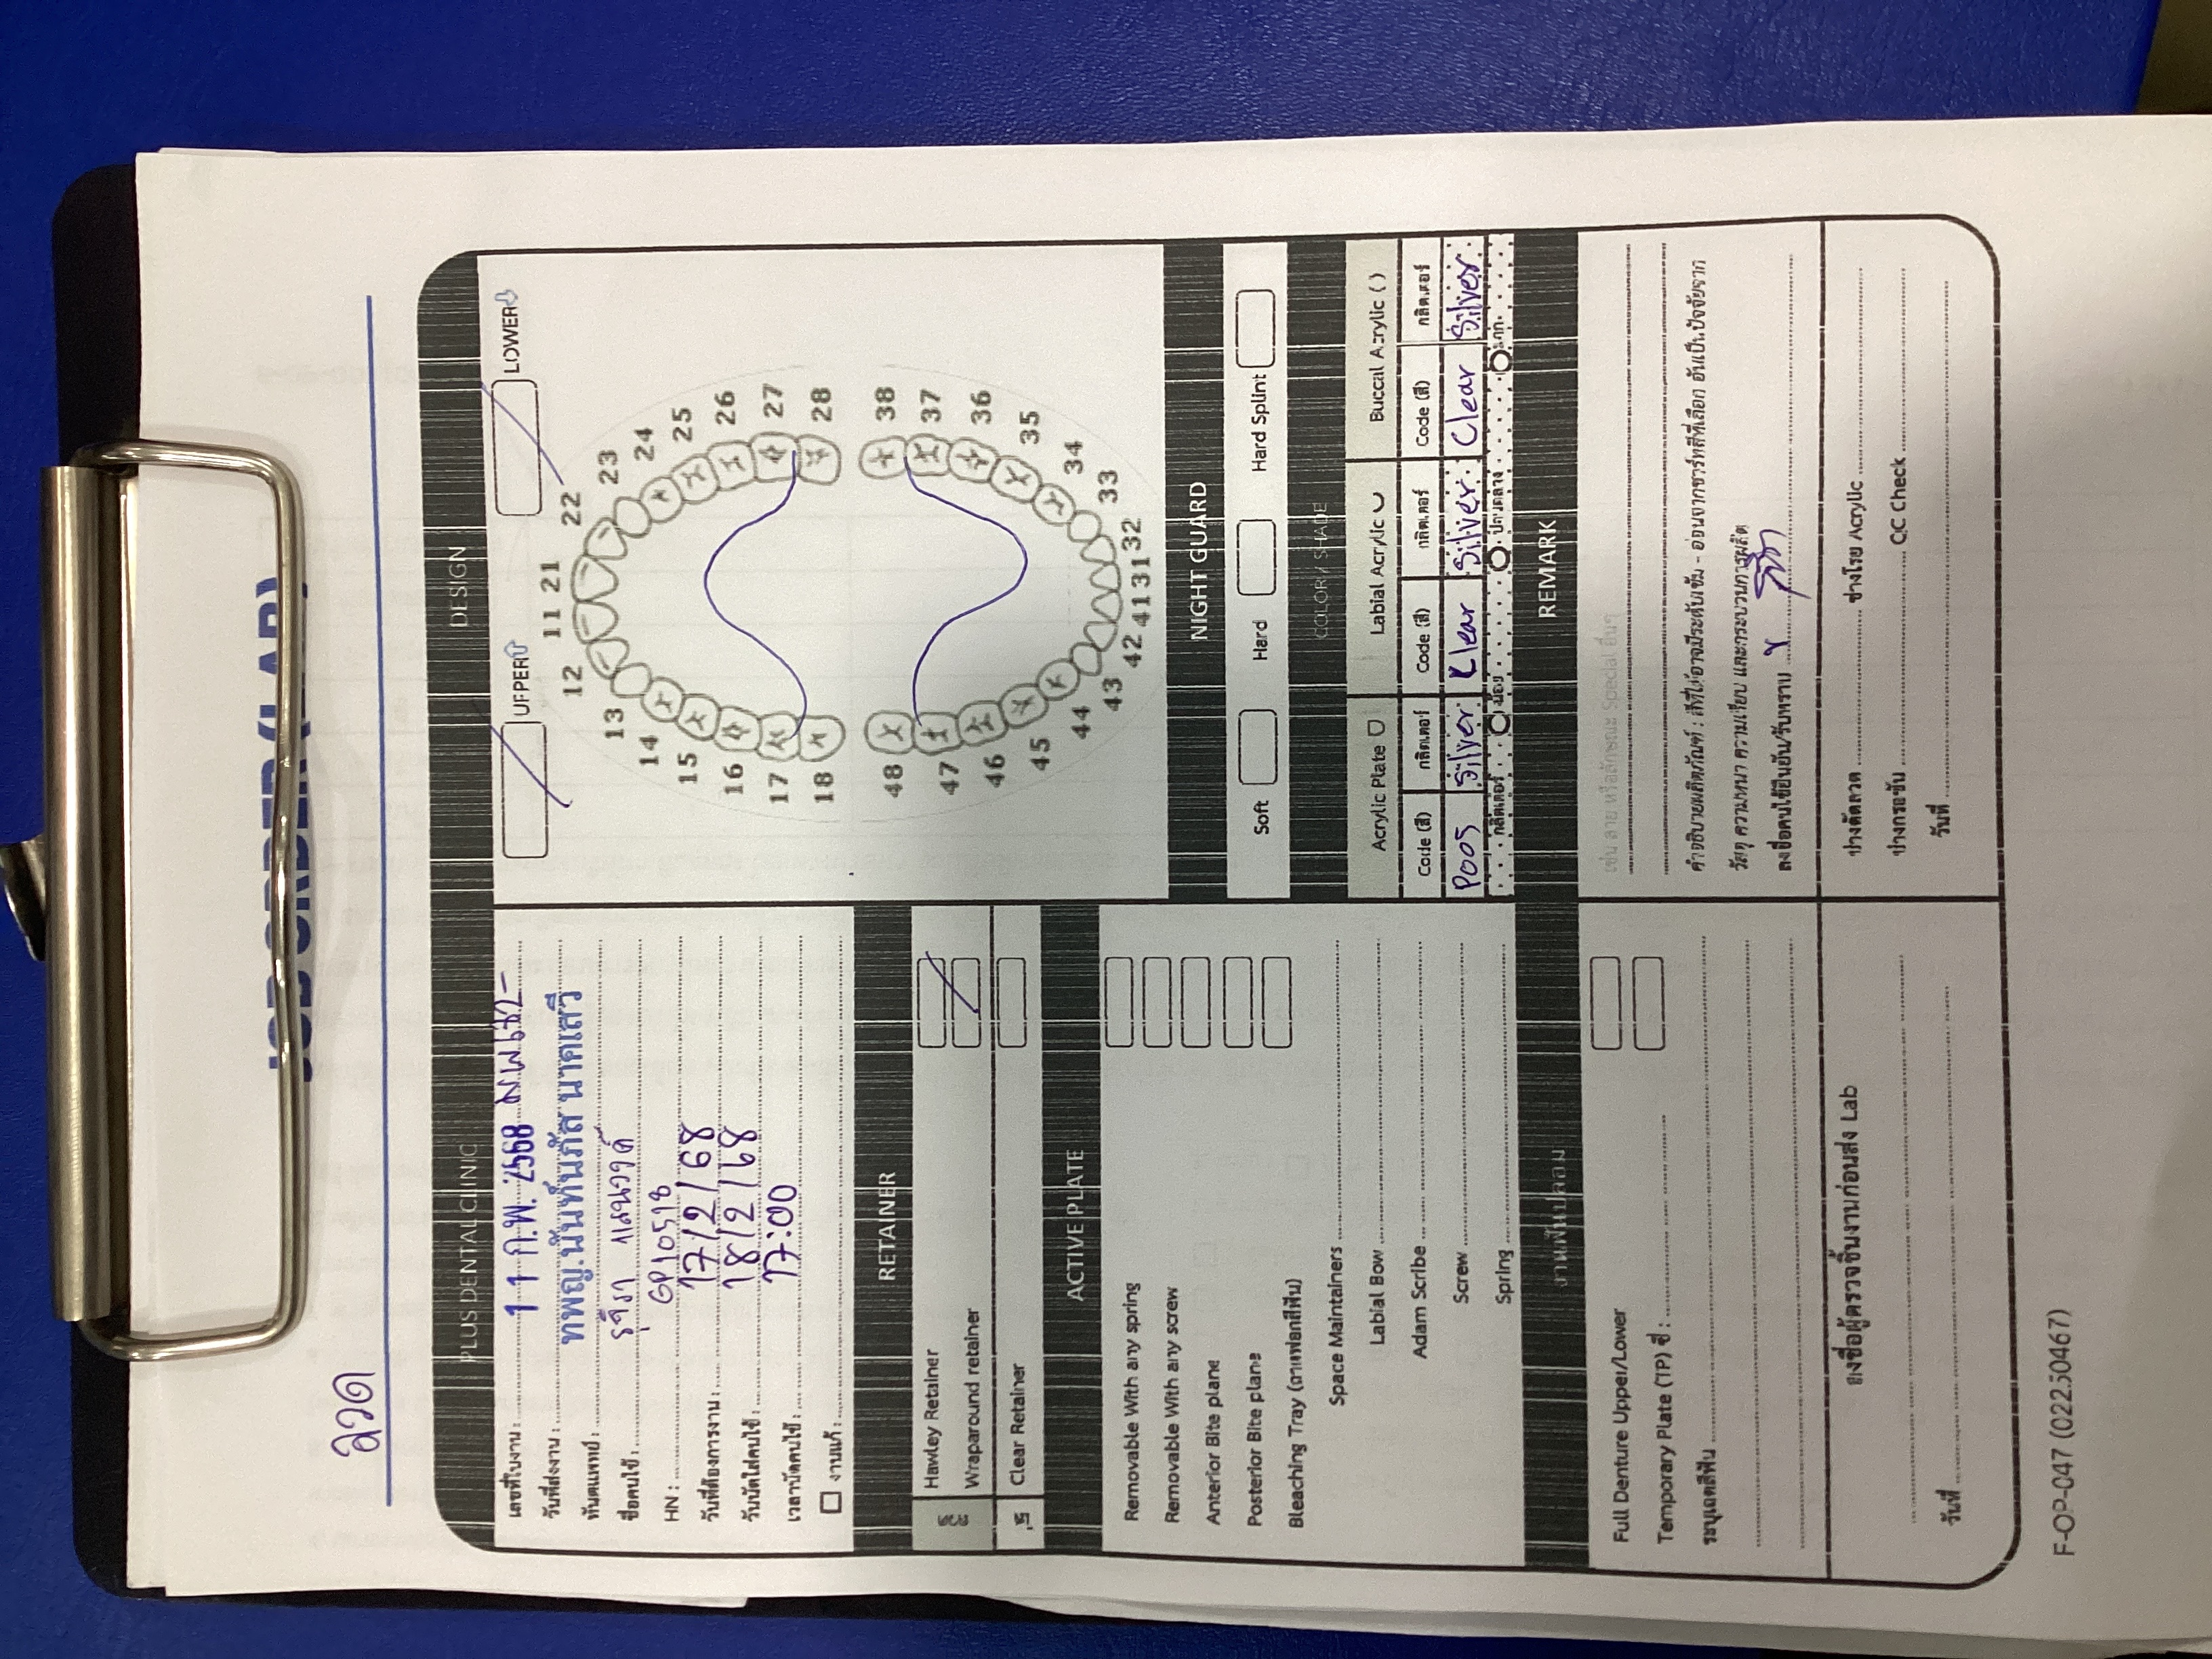 JOB ORDER (LAB)
ลวด
PLUS DENTAL CLINIC
เลขที่ใบงาน : 11 ก.พ. 2568
วันที่ส่งงาน :
ทันตแพทย์ : ทพญ.นันท์นภัส นาคเสวี
ชื่อคนไข้ : รุจิรา แสนวงค์
HN : GP10518
วันที่ต้องการงาน : 17/2/68
วันนัดใส่คนไข้ : 18/2/68
เวลานัดคนไข้ : 17:00
งานแก้ :
RETAINER
ลวด
Hawley Retainer
Wraparound retainer
ใส
Clear Retainer
ACTIVE PLATE
Removable With any spring
Removable With any screw
Anterior Bite plane
Posterior Bite plane
Bleaching Tray (ถาดฟอกสีฟัน)
Space Maintainers
Labial Bow
Adam Scribe
Screw
Spring
งานฟันปลอม
Full Denture Upper/Lower
Temporary Plate (TP) ซี่ :
ระบุเฉดสีฟัน
ลงชื่อผู้ตรวจชิ้นงานก่อนส่ง Lab
วันที่
DESIGN
UPPER LOWER
11 21
12 22
13 23
14 24
15 25
16 26
17 27
18 28
48 38
47 37
46 36
45 35
44 34
43 33
42 41 31 32
NIGHT GUARD
Soft Hard Hard Splint
COLOR / SHADE
Acrylic Plate Labial Acrylic Buccal Acrylic ( )
Code (สี) กลิตเตอร์ Code (สี) กลิตเตอร์ Code (สี) กลิตเตอร์
P005 Silver Clear Silver Clear Silver
กลิตเตอร์ น้อย ปานกลาง มาก
REMARK
เช่น ลาย หรือลักษณะ Special อื่นๆ
คำอธิบายผลิตภัณฑ์ : สีที่ได้อาจมีระดับเข้ม - อ่อนจากชาร์ทสีที่เลือก อันเป็นปัจจัยจาก
วัสดุ ความหนา ความเรียบ และกระบวนการผลิต
ลงชื่อคนไข้ยืนยัน/รับทราบ
ช่างดัดลวด ช่างโรย Acrylic
ช่างกรอขัด QC Check
วันที่
F-OP-047 (02250467)